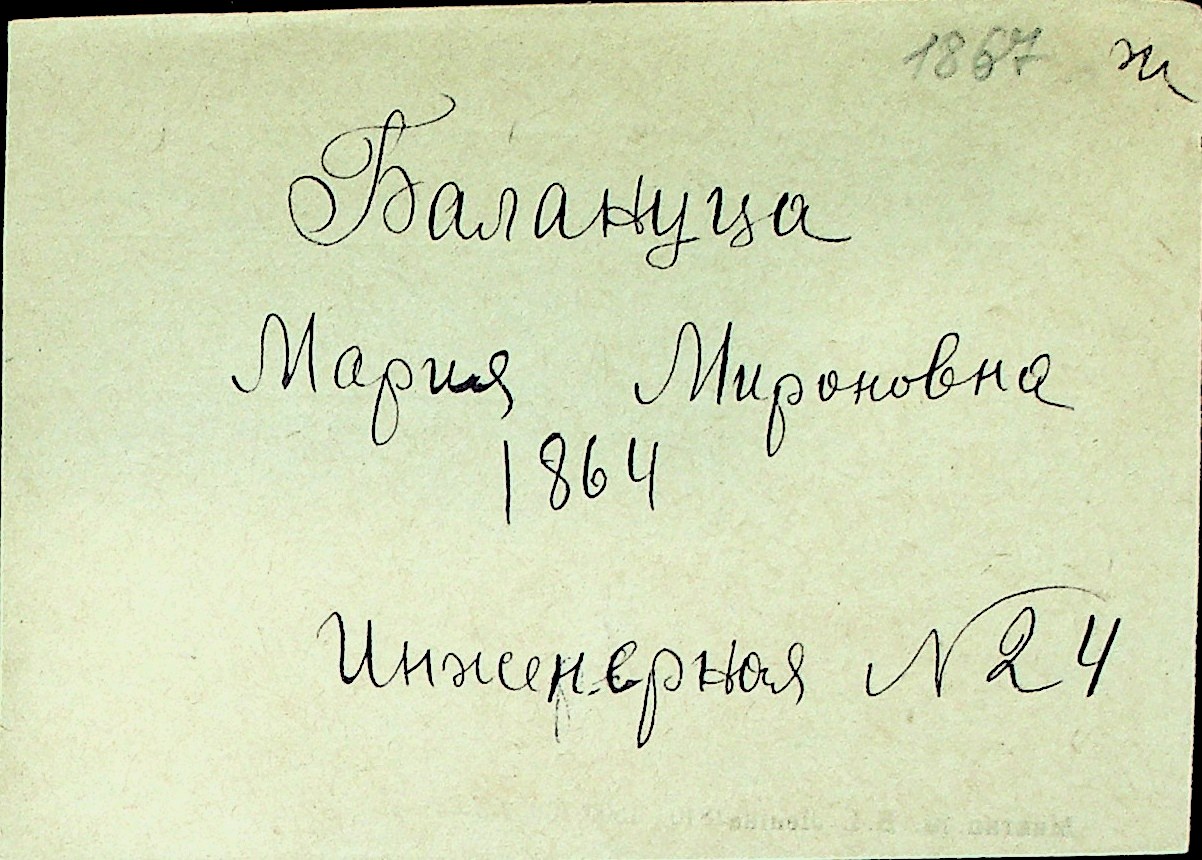 1867 ж
Балануца
Мария Мироновна
1864
Инженерная № 24